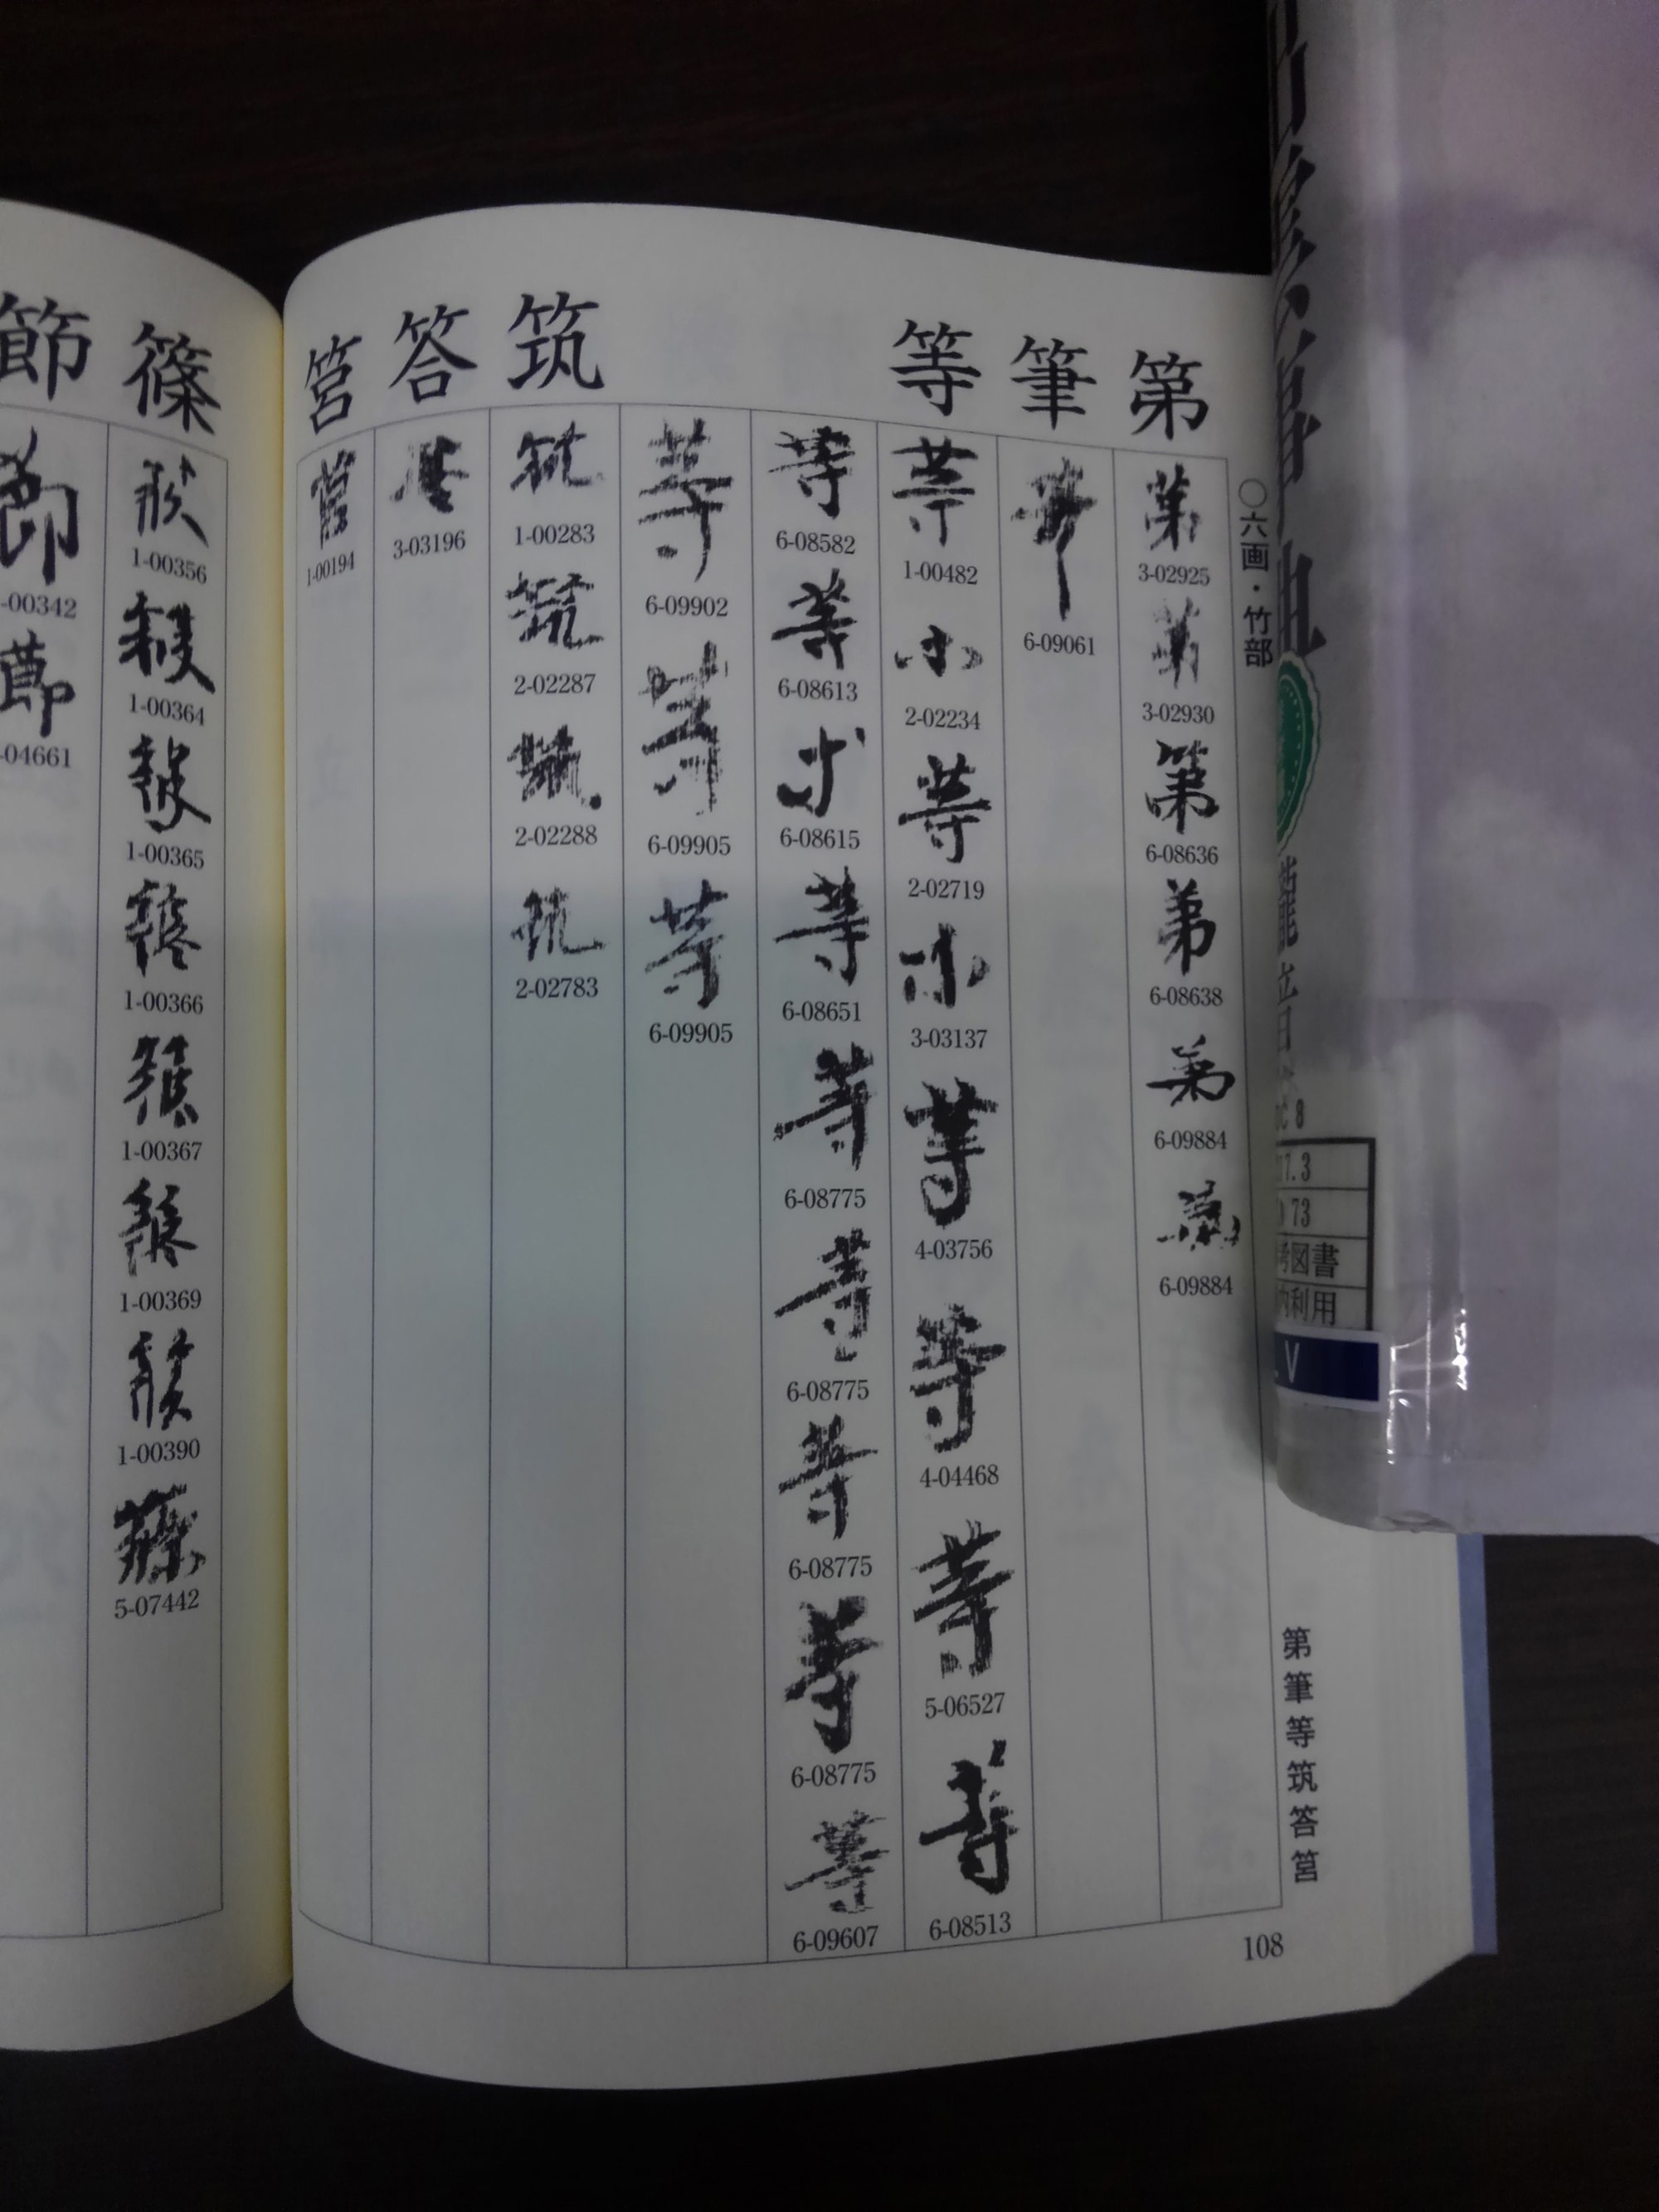 ○六画・竹部
第
3-02925
3-02930
6-08636
6-08638
6-09884
6-09884
筆
6-09061
等
1-00482
2-02234
2-02719
3-03137
4-03756
4-04468
5-06527
6-08513
6-08582
6-08613
6-08615
6-08651
6-08775
6-08775
6-08775
6-08775
6-09607
6-09902
6-09905
6-09905
筑
1-00283
2-02287
2-02288
2-02783
答
3-03196
筥
1-00194
第筆等筑答筥
108
篠
1-00356
1-00364
1-00365
1-00366
1-00367
1-00369
1-00390
5-07442
節
-00342
-04661
8
7.3
73
図書
利用
V